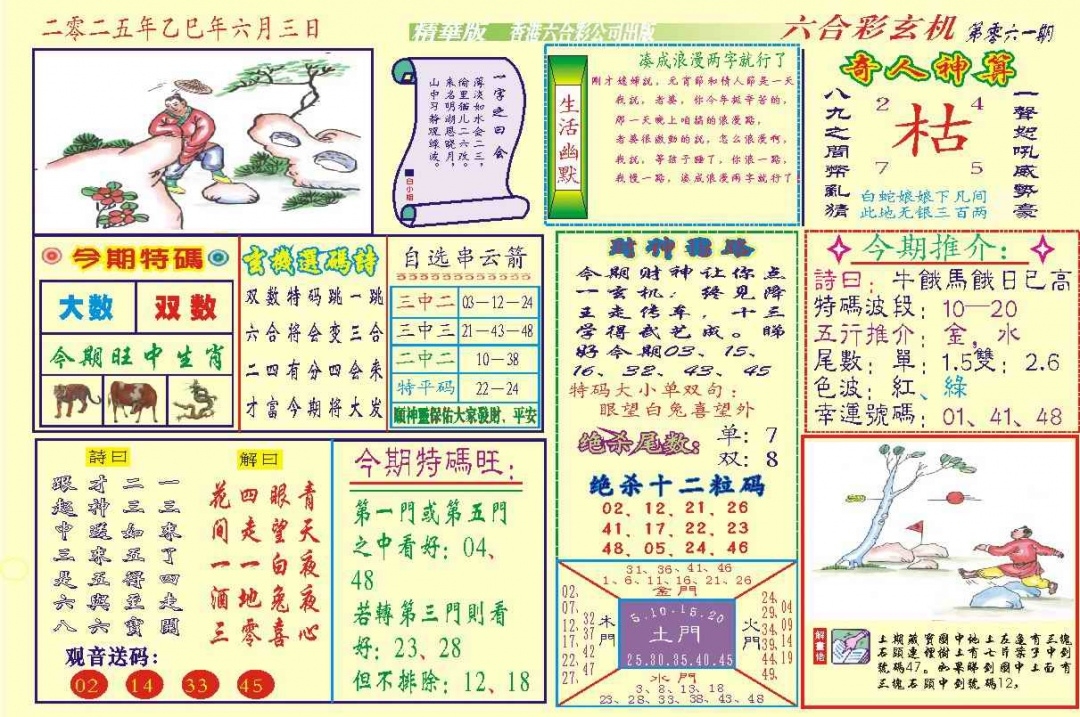 二零二五年乙巳年六月三日
精華版 香港六合彩公司出版
六合彩玄机 第零六一期
一字之曰会
薄淡如水会二三，
山中习静观绿波。
白小姐
生活幽默
凑成浪漫两字就行了
刚才媳婦説，元宵節和情人節是一天
我説，老婆，你今年挺辛苦的，
那一天晚上咱搞的浪漫點，
老婆很激動的説，怎么浪漫啊，
我説，等孩子睡了，你浪一點，
我慢一點，凑成浪漫两字就行了
奇人神算
八九之間幣亂猜
2 4
枯
7 5
一聲恕吼威勢豪
白蛇娘娘下凡间
此地无银三百两
今期特碼
大数 双数
今期旺中生肖
玄機選碼詩
双数特码跳一跳
六合将会变三合
二四有分四会来
才富今期将大发
自选串云箭
三中二 03—12—24
三中三 21—43—48
二中二 10—38
特平码 22—24
順神靈保佑大家發財、平安
财神龍路
今期财神让你点
一玄机：终见降
王走传车，十三
学得武艺成。睇
好今期03、15、
16、32、43、45
特码大小单双句：
眼望白兔喜望外
绝杀尾数： 单：7
双：8
绝杀十二粒码
02、12、21、26
41、17、22、23
48、05、24、46
今期推介：
詩曰：牛餓馬餓日已高
特碼波段：10—20
五行推介：金，水
尾數：單：1.5雙：2.6
色波：紅、綠
幸運號碼：01、41、48
詩曰
一三来了四走開
二三如五得至寶
才神送来五與六
跟起中三是六八
解曰
青天夜夜心
眼望白兔喜
四走一地零
花间一酒三
观音送码：
02 14 33 45
今期特碼旺：
第一門或第五門
之中看好：04、
48
若轉第三門則看
好：23、28
但不排除：12、18
31、36、41、46
1、6、11、16、21、26
金門
02、
07、
12、
17、
22、
27、
32
37
42
47
木門
5.10.15.20
土門
25.30.35.40.45
火門
24、
29、
34、
39、
44、
49、
04
09
14
19
水門
3、8、13、18
23、28、33、38、43、48
解畫佬
上期藏寶圖中地上左邊有三塊
石頭連樹上有七片葉子中到
號碼47。如果睇到圖中上面有
三塊石頭中到號碼12，